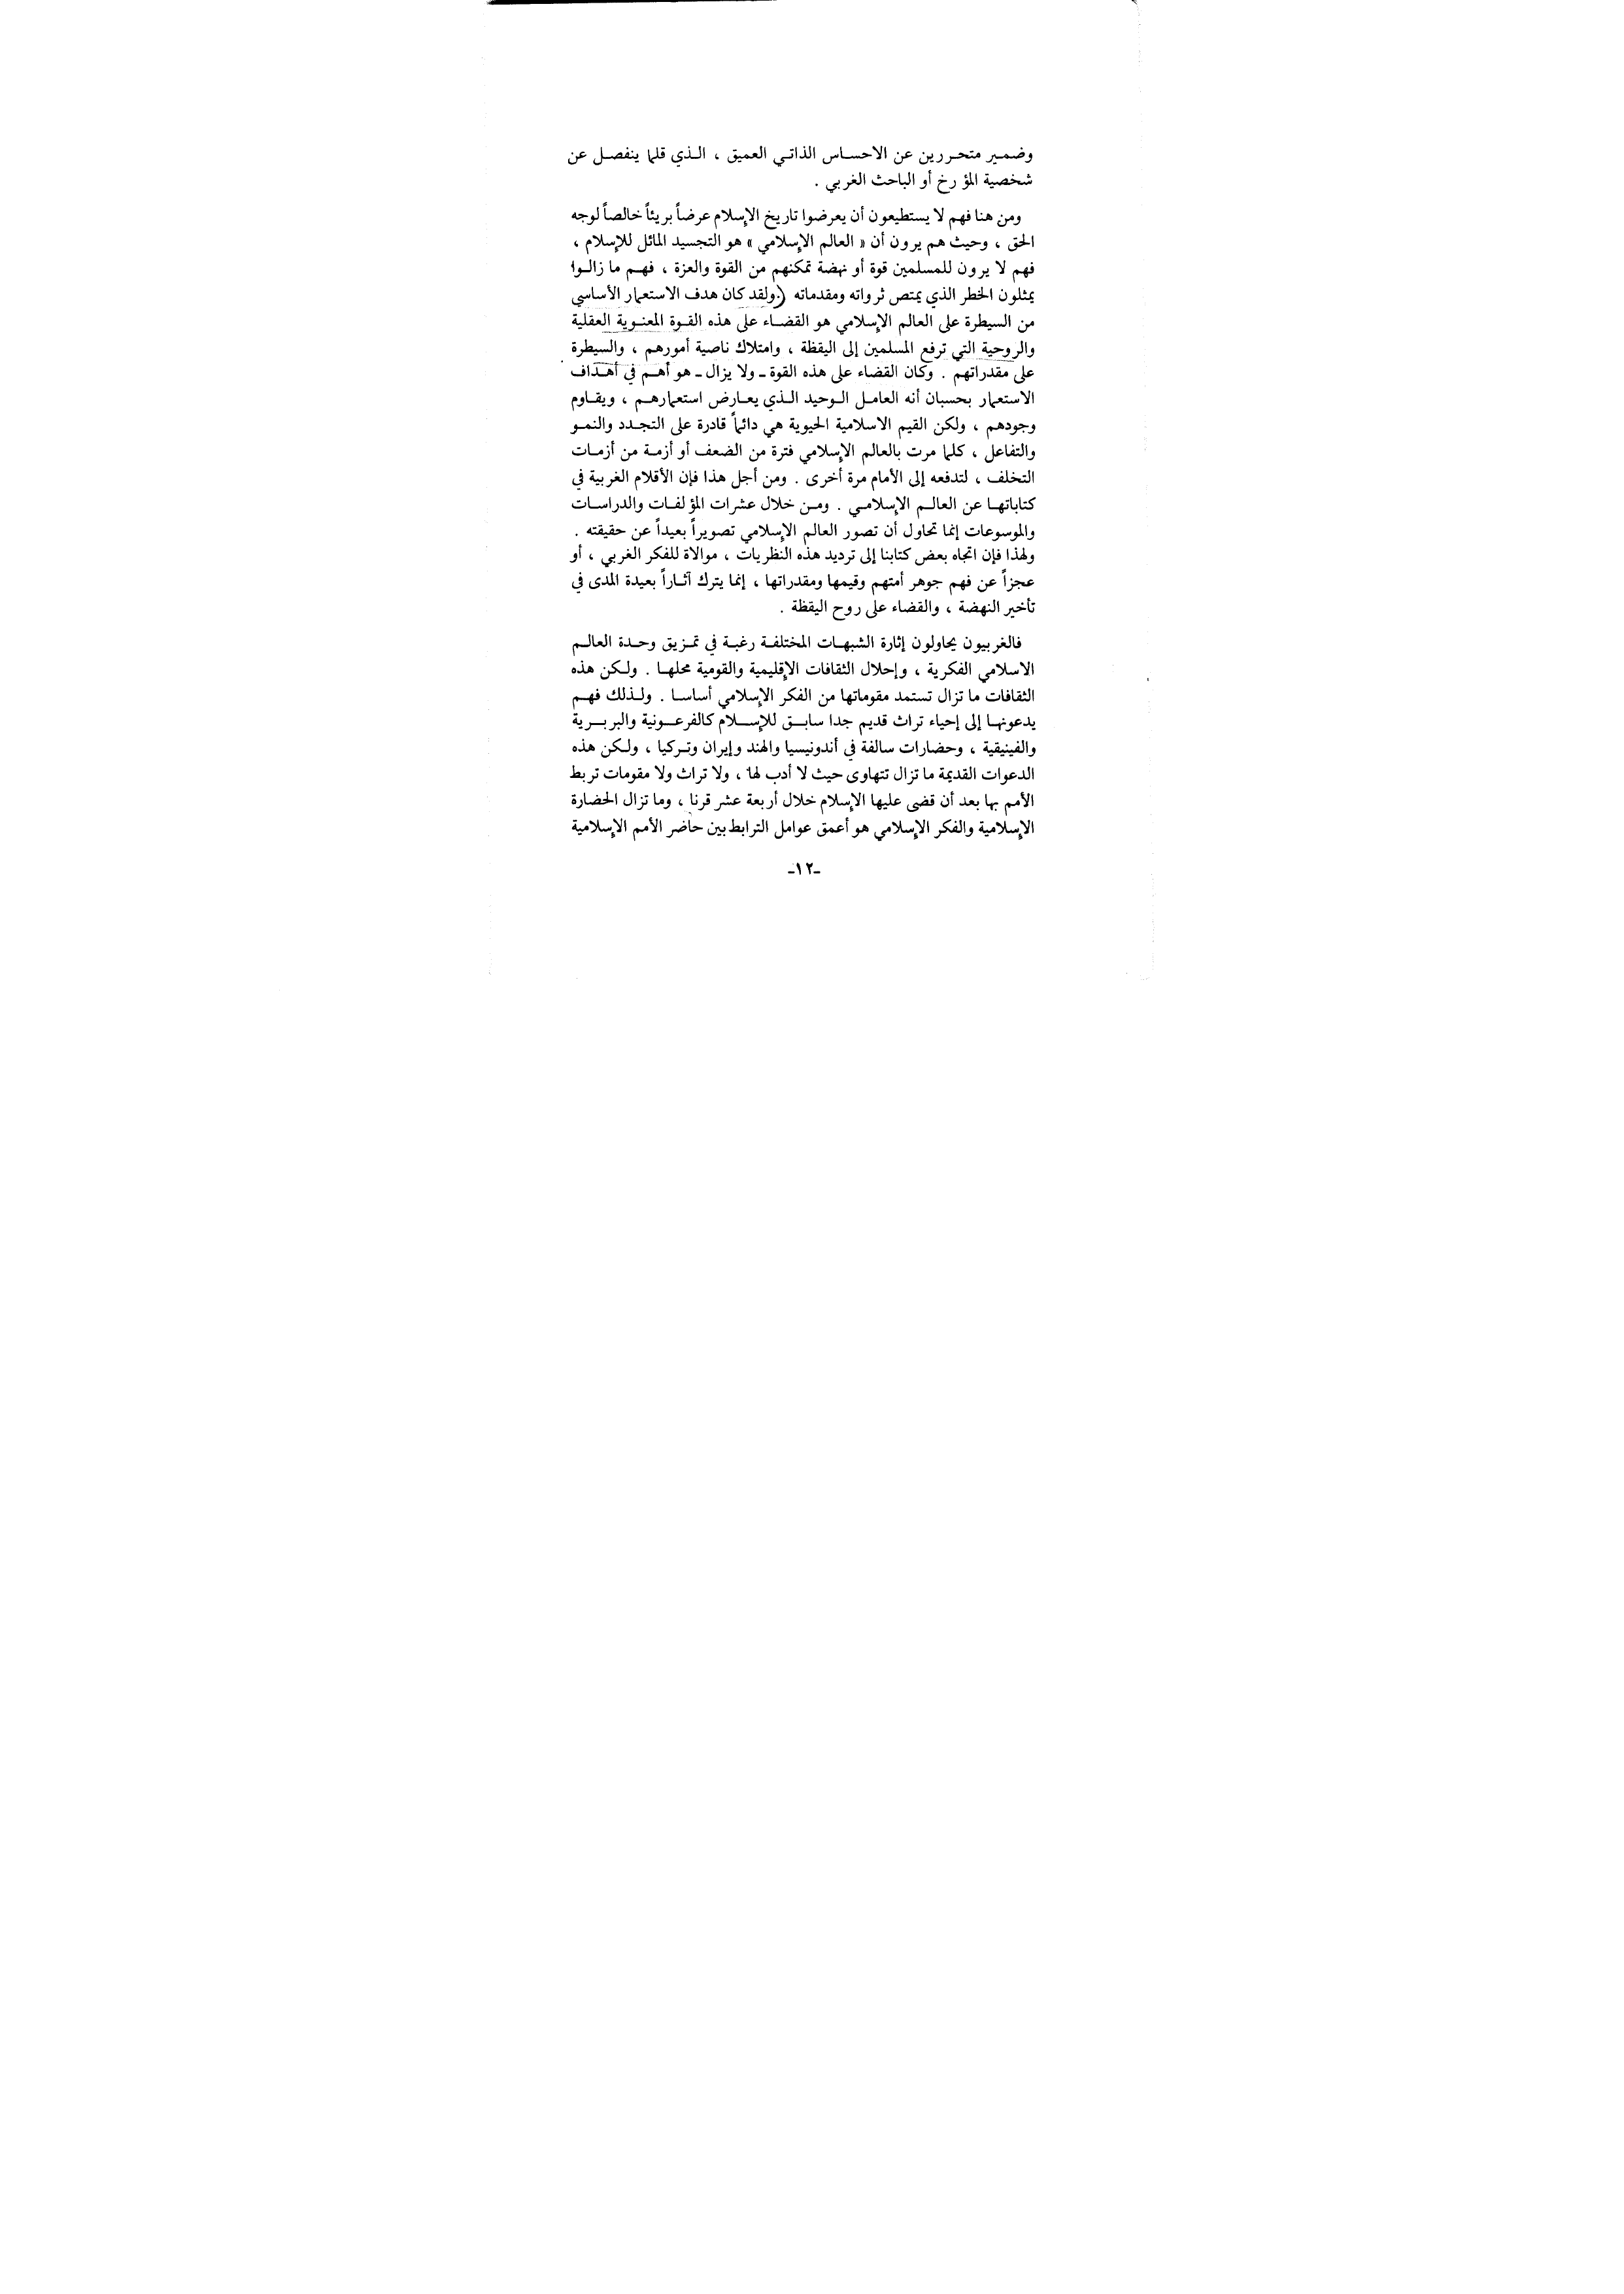 وضمير متحررين عن الاحساس الذاتي العميق ، الذي قلما ينفصل عن
شخصية المؤرخ أو الباحث الغربي .
ومن هنا فهم لا يستطيعون أن يعرضوا تاريخ الإسلام عرضاً بريئاً خالصاً لوجه
الحق ، وحيث هم يرون أن « العالم الإسلامي » هو التجسيد الماثل للإسلام ،
فهم لا يرون للمسلمين قوة أو نهضة تمكنهم من القوة والعزة ، فهم ما زالوا
يمثلون الخطر الذي يمتص ثرواته ومقدماته (. ولقد كان هدف الاستعمار الأساسي
من السيطرة على العالم الإسلامي هو القضاء على هذه القوة المعنوية العقلية
والروحية التي ترفع المسلمين إلى اليقظة ، وامتلاك ناصية أمورهم ، والسيطرة
على مقدراتهم . وكان القضاء على هذه القوة ـ ولا يزال ـ هو أهم في أهداف
الاستعمار بحسبان أنه العامل الوحيد الذي يعارض استعمارهم ، ويقاوم
وجودهم ، ولكن القيم الاسلامية الحيوية هي دائماً قادرة على التجدد والنمو
والتفاعل ، كلما مرت بالعالم الإسلامي فترة من الضعف أو أزمة من أزمات
التخلف ، لتدفعه إلى الأمام مرة أخرى . ومن أجل هذا فإن الأقلام الغربية في
كتاباتها عن العالم الإسلامي . ومن خلال عشرات المؤلفات والدراسات
والموسوعات إنما تحاول أن تصور العالم الإسلامي تصويراً بعيداً عن حقيقته .
ولهذا فإن اتجاه بعض كتابنا إلى ترديد هذه النظريات ، موالاة للفكر الغربي ، أو
عجزاً عن فهم جوهر أمتهم وقيمها ومقدراتها ، إنما يترك آثاراً بعيدة المدى في
تأخير النهضة ، والقضاء على روح اليقظة .
فالغربيون يحاولون إثارة الشبهات المختلفة رغبة في تمزيق وحدة العالم
الاسلامي الفكرية ، وإحلال الثقافات الإقليمية والقومية محلها . ولكن هذه
الثقافات ما تزال تستمد مقوماتها من الفكر الإسلامي أساسا . ولذلك فهم
يدعونها إلى إحياء تراث قديم جدا سابق للإسلام كالفرعونية والبربرية
والفينيقية ، وحضارات سالفة في أندونيسيا والهند وإيران وتركيا ، ولكن هذه
الدعوات القديمة ما تزال تتهاوى حيث لا أدب لها ، ولا تراث ولا مقومات تربط
الأمم بها بعد أن قضى عليها الإسلام خلال أربعة عشر قرنا ، وما تزال الحضارة
الإسلامية والفكر الإسلامي هو أعمق عوامل الترابط بين حاضر الأمم الإسلامية
ـ١٢ـ